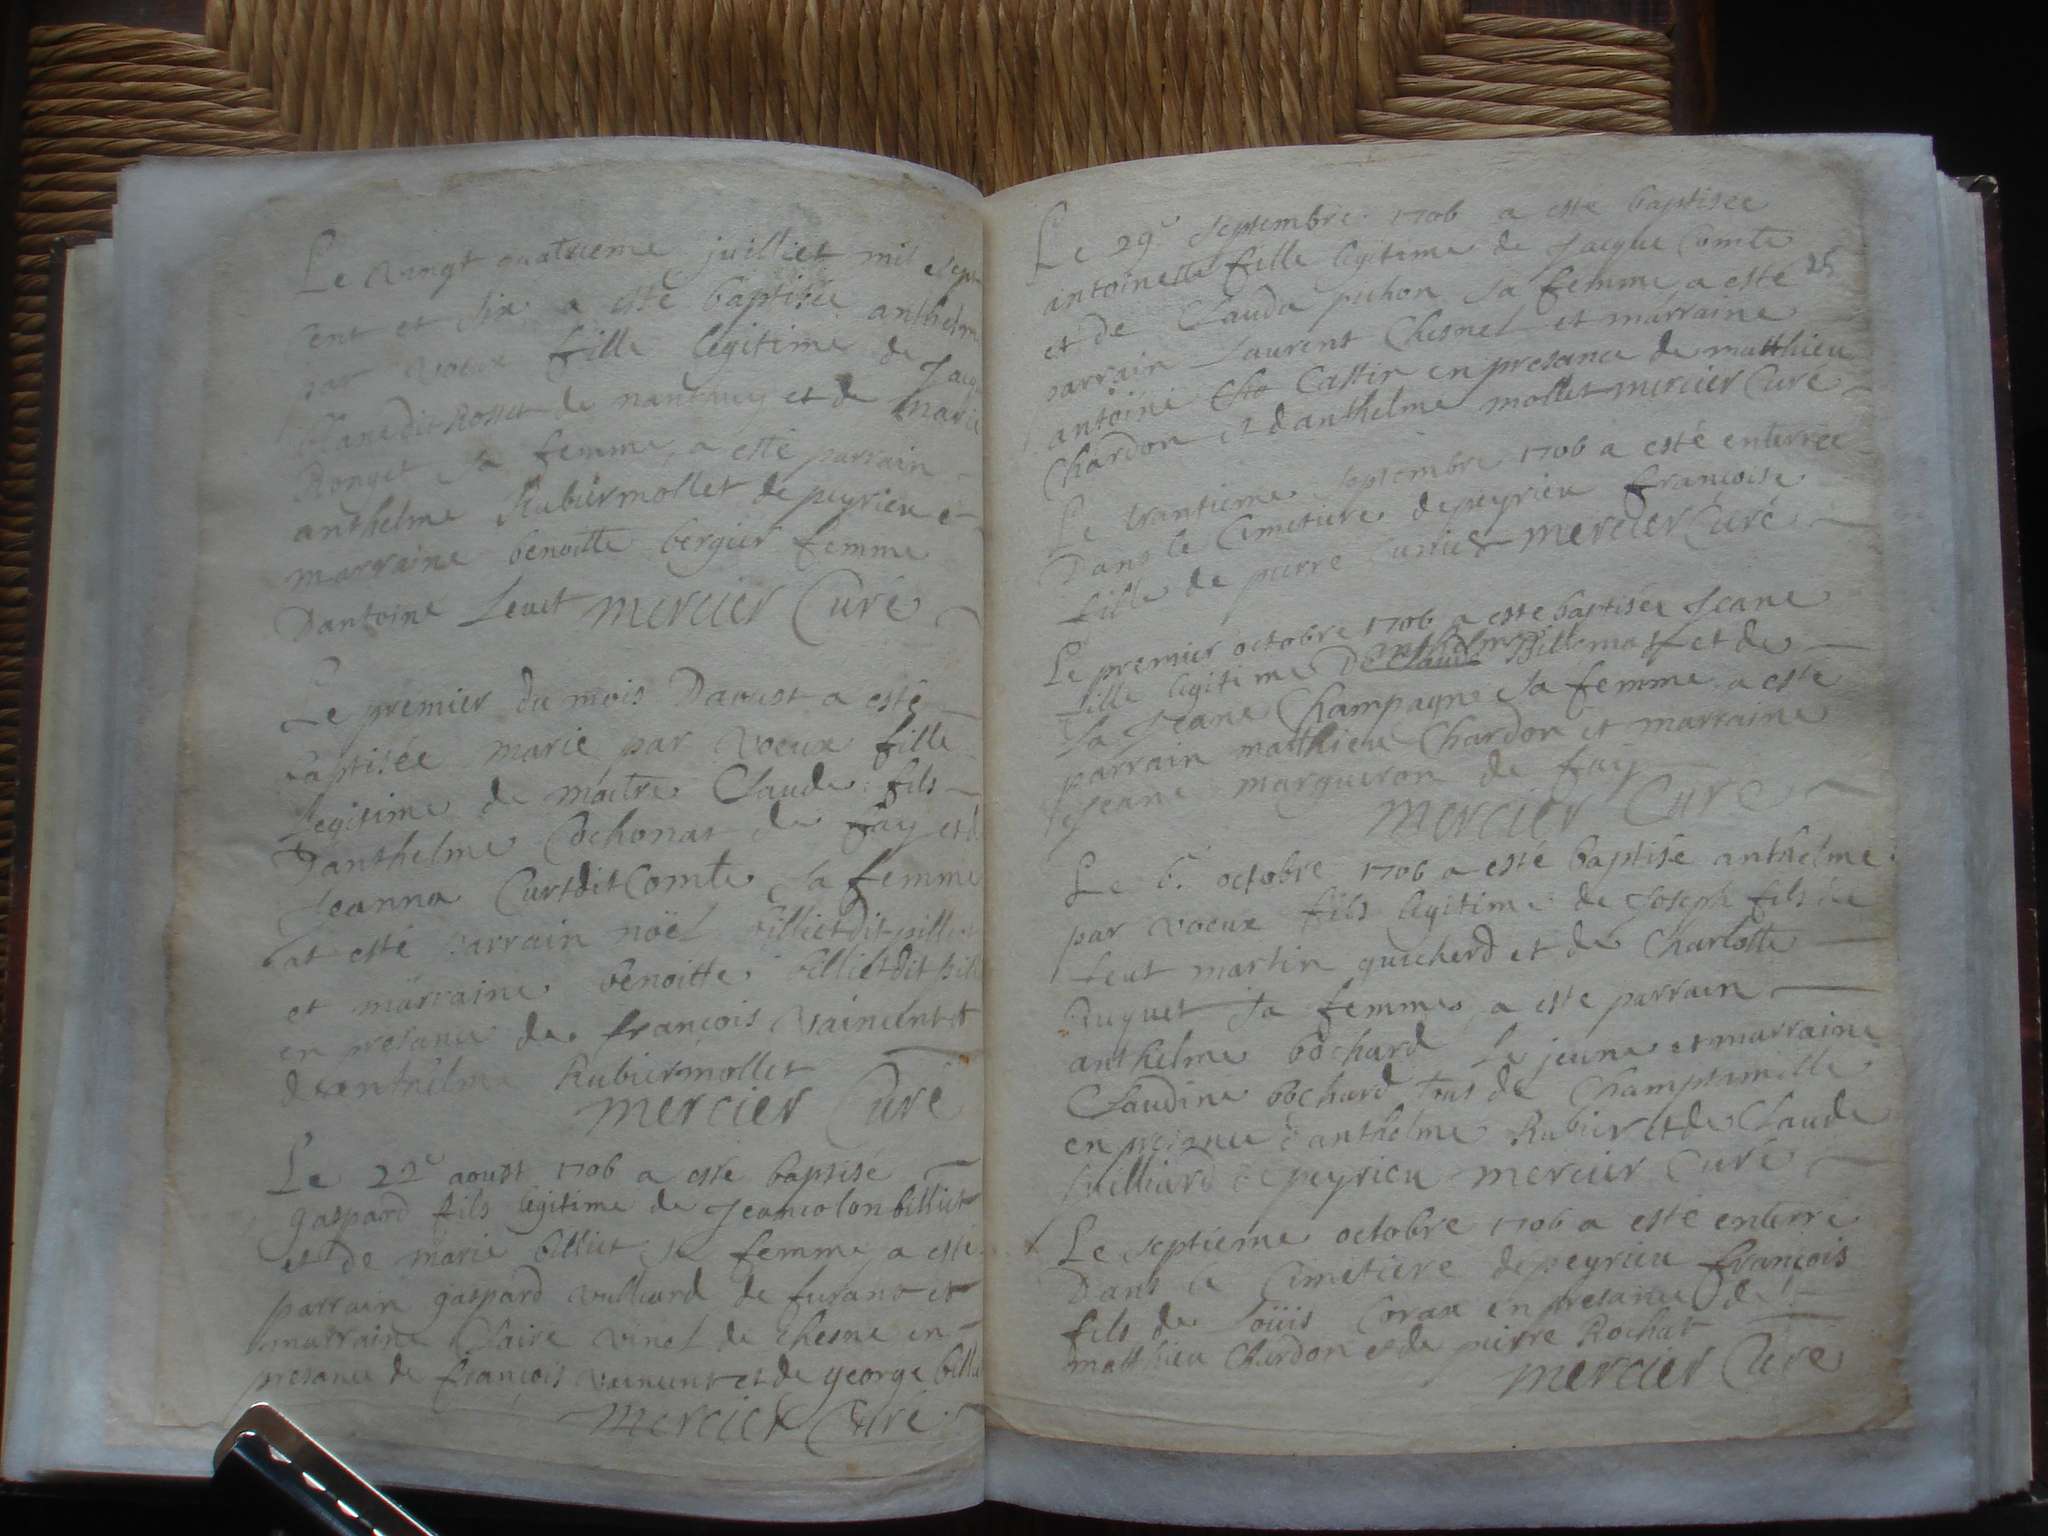 Le vingt quatrieme juilliet mil sept
cent et six a esté baptisée anthelme
par voeux fille legitime de Jacque
dit Rosset de nantuy et de marie
Ronget sa femme, a esté parrain
anthelme Rubiermollet de peyrieu et
marraine benoitte bergier femme
Dantoine Levet mercier Curé
Le premier du mois Daoust a esté
baptisée marie par voeux fille
Legitime de maitre Claude fils
Danthelme Cochonat de Fay et de
Jeanna Curtdit Comte sa femme
at esté parrain noël billietdit pilliet
et marraine benoitte billietdit
en presance de françois vaincent et
de anthelme Rubiermollet
mercier Curé
Le 22e aoust 1706 a esté baptisé
gaspard fils legitime de Jeancolon billiet
et de marie billiet sa femme, a esté
parrain gaspard vulliard de furans et
marraine Claire vinel de Chesne en
presance de françois vaincent et de george billiet
mercier Curé
Le 29e septembre 1706 a esté baptisée
antoinette fille legitime de Jacque Comte
et de Clauda pichon sa femme a esté
25
parrain Laurent Chesnel et marraine
antoine Castin en presance de matthieu
Chardon et danthelme mollet mercier Curé
Le trantieme septembre 1706 a esté enterrée
Dans le Cimetiere de peyrieu françoise
fille de pierre mercier Curé
Le premier octobre 1706 a esté baptisée Jeane
anthelme
fille legitime De Claude Billemas et de
La Jeane Champagne sa femme a esté
parrain matthieu Chardon et marraine
Jeane margueron de fay
mercier Curé
Le 6e octobre 1706 a esté baptisé anthelme
par voeux fils legitime de Joseph fils de
feut martin guicherd et de Charlotte
Ruguet sa femme, a este parrain
anthelme bochard Le jeune et marraine
Claudine bochard tous de Champtamille
en presance danthelme Rubier et de Claude
vulliard de peyrieu mercier Curé
Le septieme octobre 1706 a esté enterré
Dans le Cimetiere de peyrieu françois
fils de Loüis Corax en presance de
matthieu Chardon et de pierre Rochat
mercier Curé